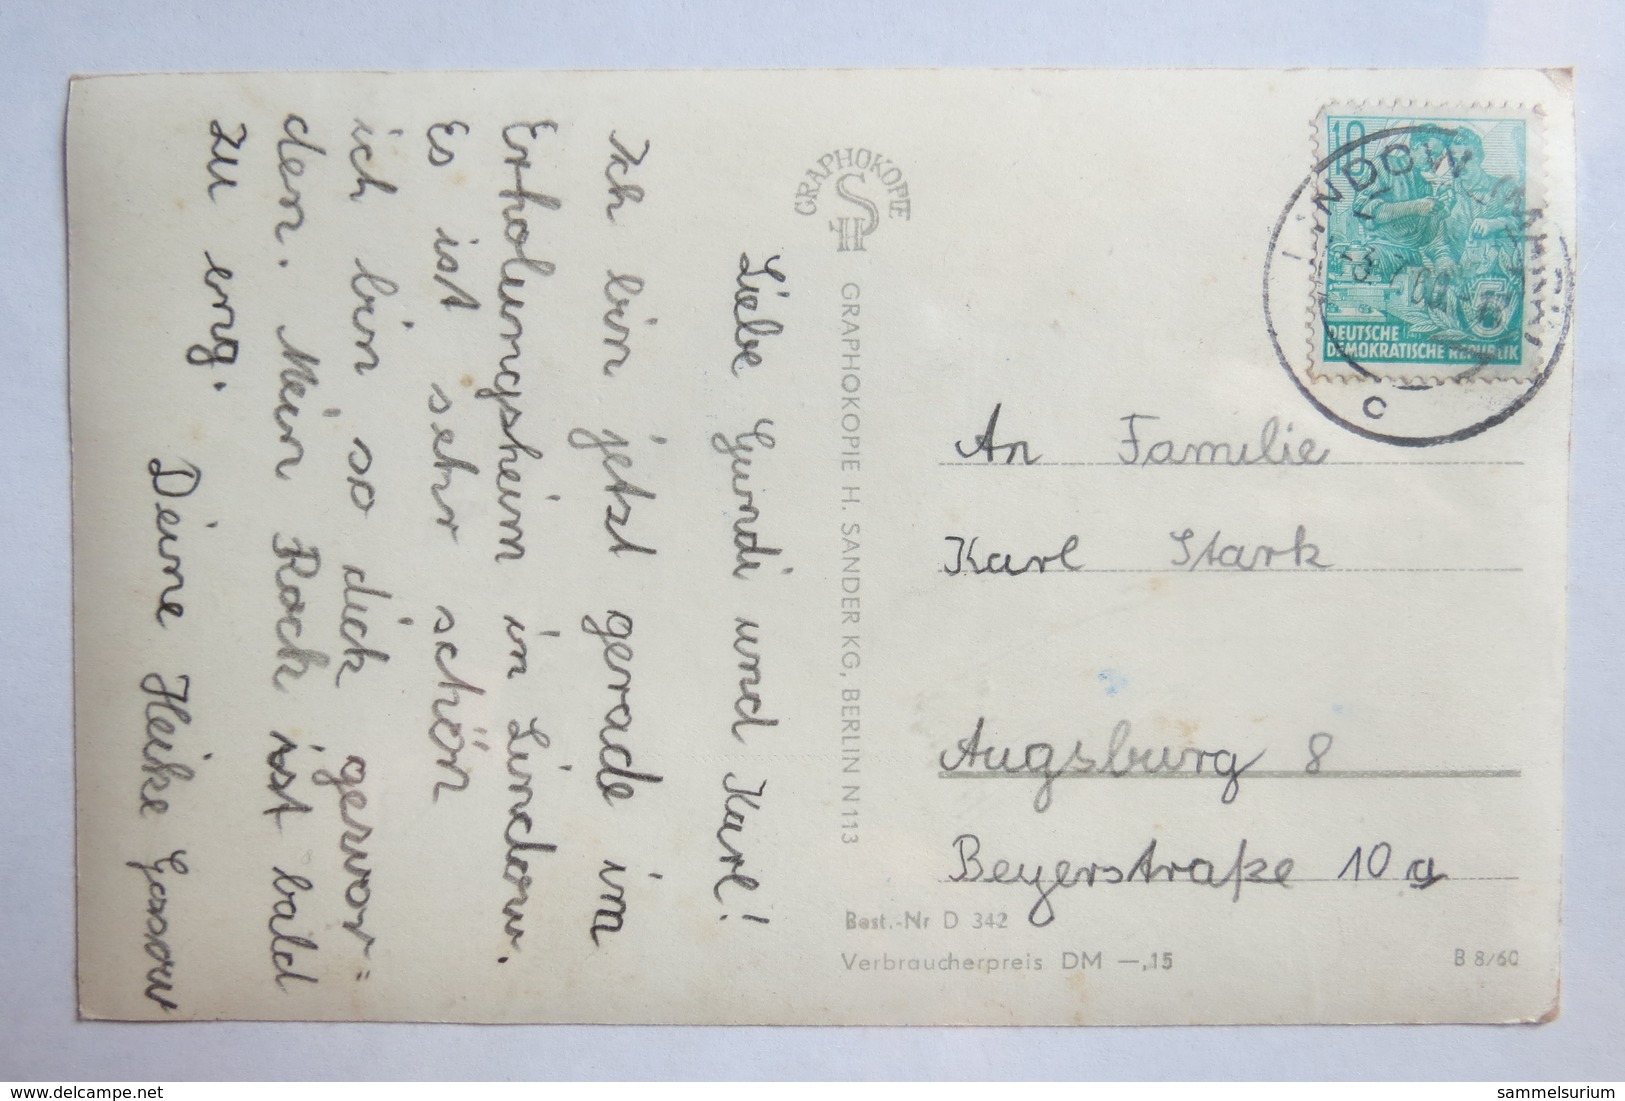 Liebe Gundi und Karl!
Ich bin jetzt gerade im
Erholungsheim in Lindow.
Es ist sehr schön
ich bin so dick gewor=
den. Mein Rock ist bald
zu eng.
Deine Heike Gossow
GRAPHOKOPIE
GRAPHOKOPIE H. SANDER KG, BERLIN N 113
10
DEUTSCHE
DEMOKRATISCHE REPUBLIK
LINDOW (MARK)
c
An Familie
Karl Stark
Augsburg 8
Beyerstraße 10 a
Best.-Nr D 342
Verbraucherpreis DM —,15
B 8/60
www.delcampe.net
sammelsurium